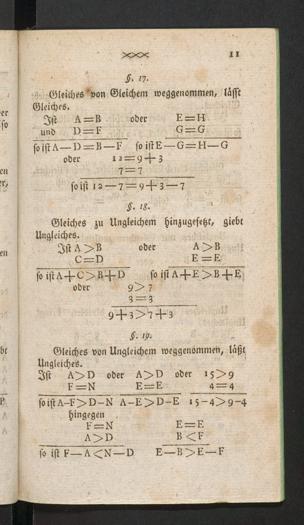 11
§. 17.
Gleiches von Gleichem weggenommen, läſſt
Gleiches.
Iſt A=B oder E=H
und D=F G=G
ſo iſt A—D=B—F ſo iſt E—G=H—G
oder 12=9+3
7=7
ſo iſt 12—7=9+3—7
§. 18.
Gleiches zu Ungleichem hinzugeſetzt, giebt
Ungleiches.
Iſt A>B oder A>B
C=D E=E
ſo iſt A+C>B+D ſo iſt A+E>B+E
oder 9>7
3=3
9+3>7+3
§. 19.
Gleiches von Ungleichem weggenommen, läßt
Ungleiches.
Iſt A>D oder A>D oder 15>9
F=N E=E 4=4
ſo iſt A-F>D-N A-E>D-E 15-4>9-4
hingegen
F=N E=E
A>D B<F
ſo iſt F—A<N—D E—B>E—F